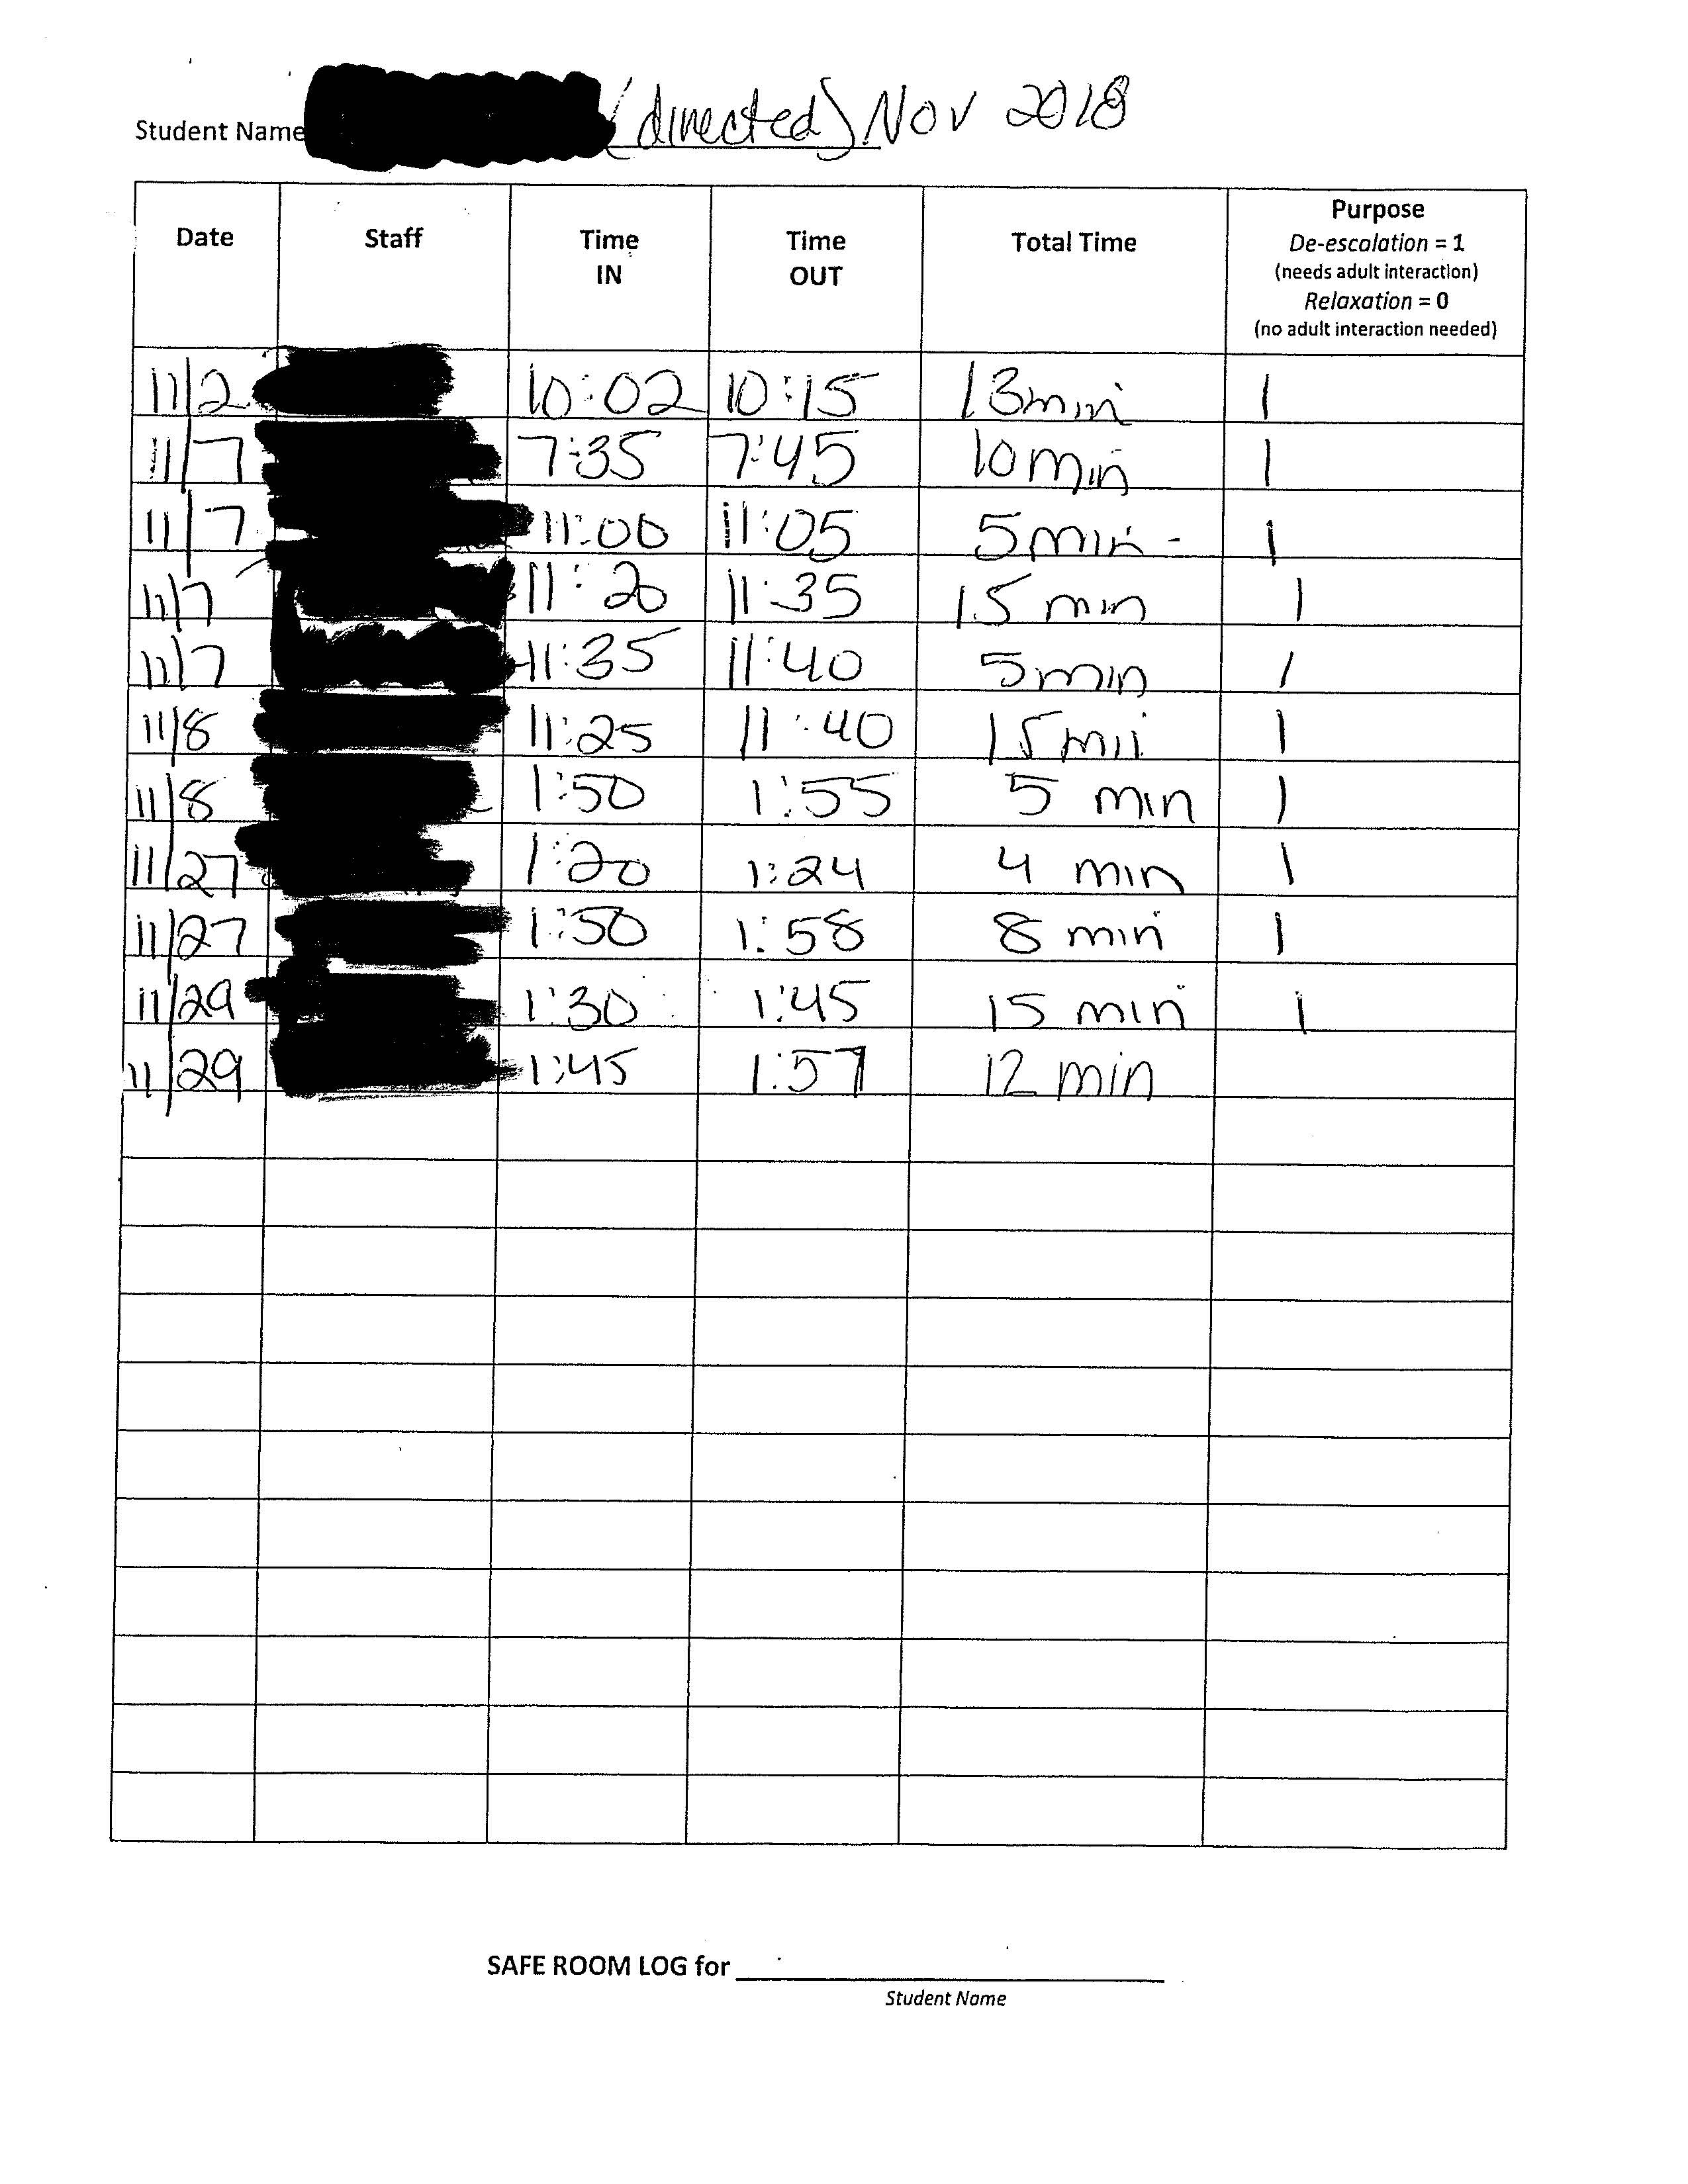 Student Name (directed) Nov 2018
Date Staff Time IN Time OUT Total Time Purpose
De-escalation = 1
(needs adult interaction)
Relaxation = 0
(no adult interaction needed)
11/2 10:02 10:15 13 min 1
11/7 7:35 7:45 10 min 1
11/7 11:00 11:05 5 min - 1
11/7 11:20 11:35 15 min 1
11/7 11:35 11:40 5 min 1
11/8 11:25 11:40 15 min 1
11/8 1:50 1:55 5 min 1
11/27 1:20 1:24 4 min 1
11/27 1:50 1:58 8 min 1
11/29 1:30 1:45 15 min 1
11/29 1:45 1:57 12 min
SAFE ROOM LOG for
Student Name